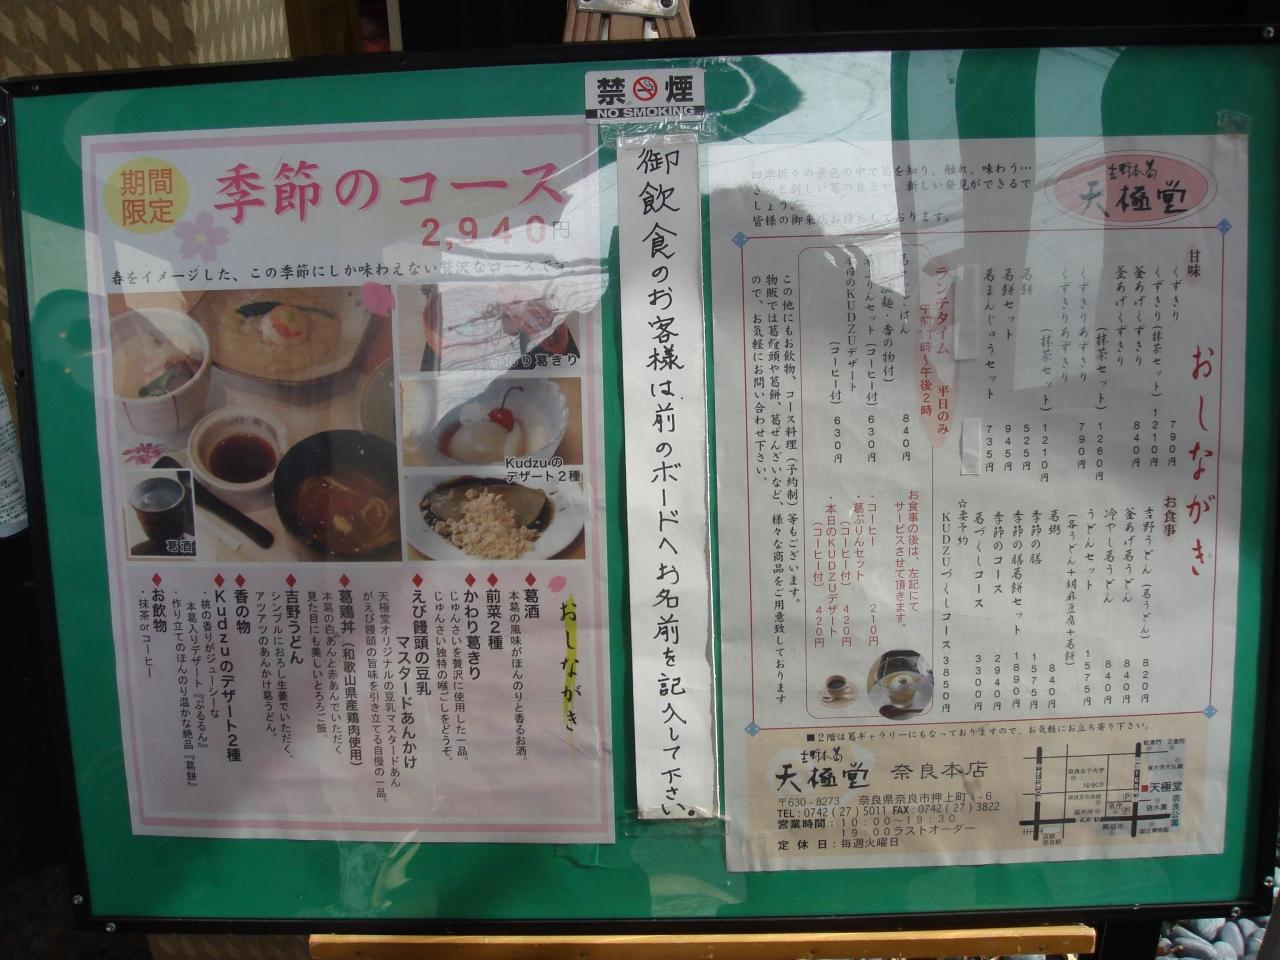 期間
限定
季節のコース
2,940円
春をイメージした、この季節にしか味わえない贅沢なコースです
かわり葛きり
Kudzuの
デザート2種
葛酒
おしながき
◆葛酒
本葛の風味がほんのりと香るお酒。
◆前菜2種
◆かわり葛きり
じゅんさいを贅沢に使用した一品。
じゅんさい独特の喉ごしをどうぞ。
◆えび饅頭の豆乳
マスタードあんかけ
天極堂オリジナルの豆乳マスタードあん
がえび饅頭の旨味を引き立てる自慢の一品。
◆葛鶏丼（和歌山県産鶏肉使用）
本葛の白あんと赤あんでいただく
見た目にも美しいとろろご飯。
◆吉野うどん
シンプルにおろし生姜でいただく、
アツアツのあんかけ葛うどん。
◆香の物
◆Kudzuのデザート2種
・桃の香りがジューシーな
本葛入りデザート『ぷるるん』
・作り立てのほんのり温かな絶品『葛餅』
◆お飲物
・抹茶orコーヒー
禁煙
NO SMOKING
御飲食のお客様は前のボードへお名前を記入して下さい。
吉野本葛
天極堂
四季折々の景色の中で葛を知り、触れ、味わう…
きっと新しい葛の良さや、新しい発見ができるで
しょう。
皆様の御来店お待ちしております。
おしながき
甘味
くずきり 790円
くずきり(抹茶セット) 1210円
釜あげくずきり 840円
釜あげくずきり
(抹茶セット) 1260円
くずきりあずきり 790円
くずきりあずきり
(抹茶セット) 1210円
葛餅 525円
葛餅セット 945円
葛まんじゅうセット 735円
お食事
吉野うどん(葛うどん) 820円
釜あげ葛うどん 840円
冷やし葛うどん 840円
うどんセット 1575円
(各うどん+胡麻豆腐+葛餅)
葛粥 840円
季節の膳 1575円
季節の膳葛餅セット 1890円
季節のコース 2940円
葛づくしコース 3300円
☆要予約
KUDZUづくしコース 3850円
ランチタイム 平日のみ
午前11時～午後2時
840円
・香の物付)
(コーヒー付) 630円
本日のKUDZUデザート
(コーヒー付) 630円
お食事の後は、左記にて
サービスさせて頂きます。
・コーヒー 210円
・葛ぷりんセット
(コーヒー付) 420円
・本日のKUDZUデザート
(コーヒー付) 420円
この他にもお飲物、コース料理(予約制)等もございます。
物販では葛饅頭や葛餅、葛ぜんざいなど、様々な商品をご用意致しております
ので、お気軽にお問い合わせ下さい。
■2階は葛ギャラリーにもなっておりますので、お気軽にお立ち寄り下さい。
吉野本葛
天極堂 奈良本店
〒630-8273 奈良県奈良市押上町1-6
TEL:0742(27)5011 FAX:0742(27)3822
営業時間：10:00～19:30
19:00ラストオーダー
定休日：毎週火曜日
転害門
正倉院
奈良女子大学
東大寺大仏殿
NHK
天極堂
奈良公園
依水園
興福寺
国立博物館
近鉄
奈良駅